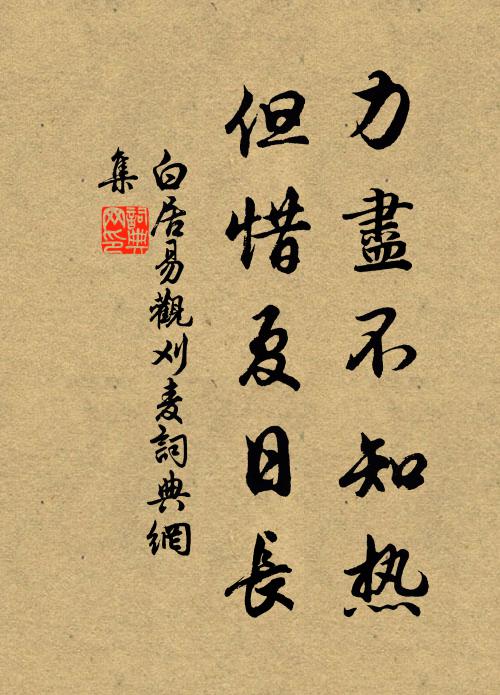 力盡不知热
但惜夏日長
白居易觀刈麦詞典網
集
詞典
网印